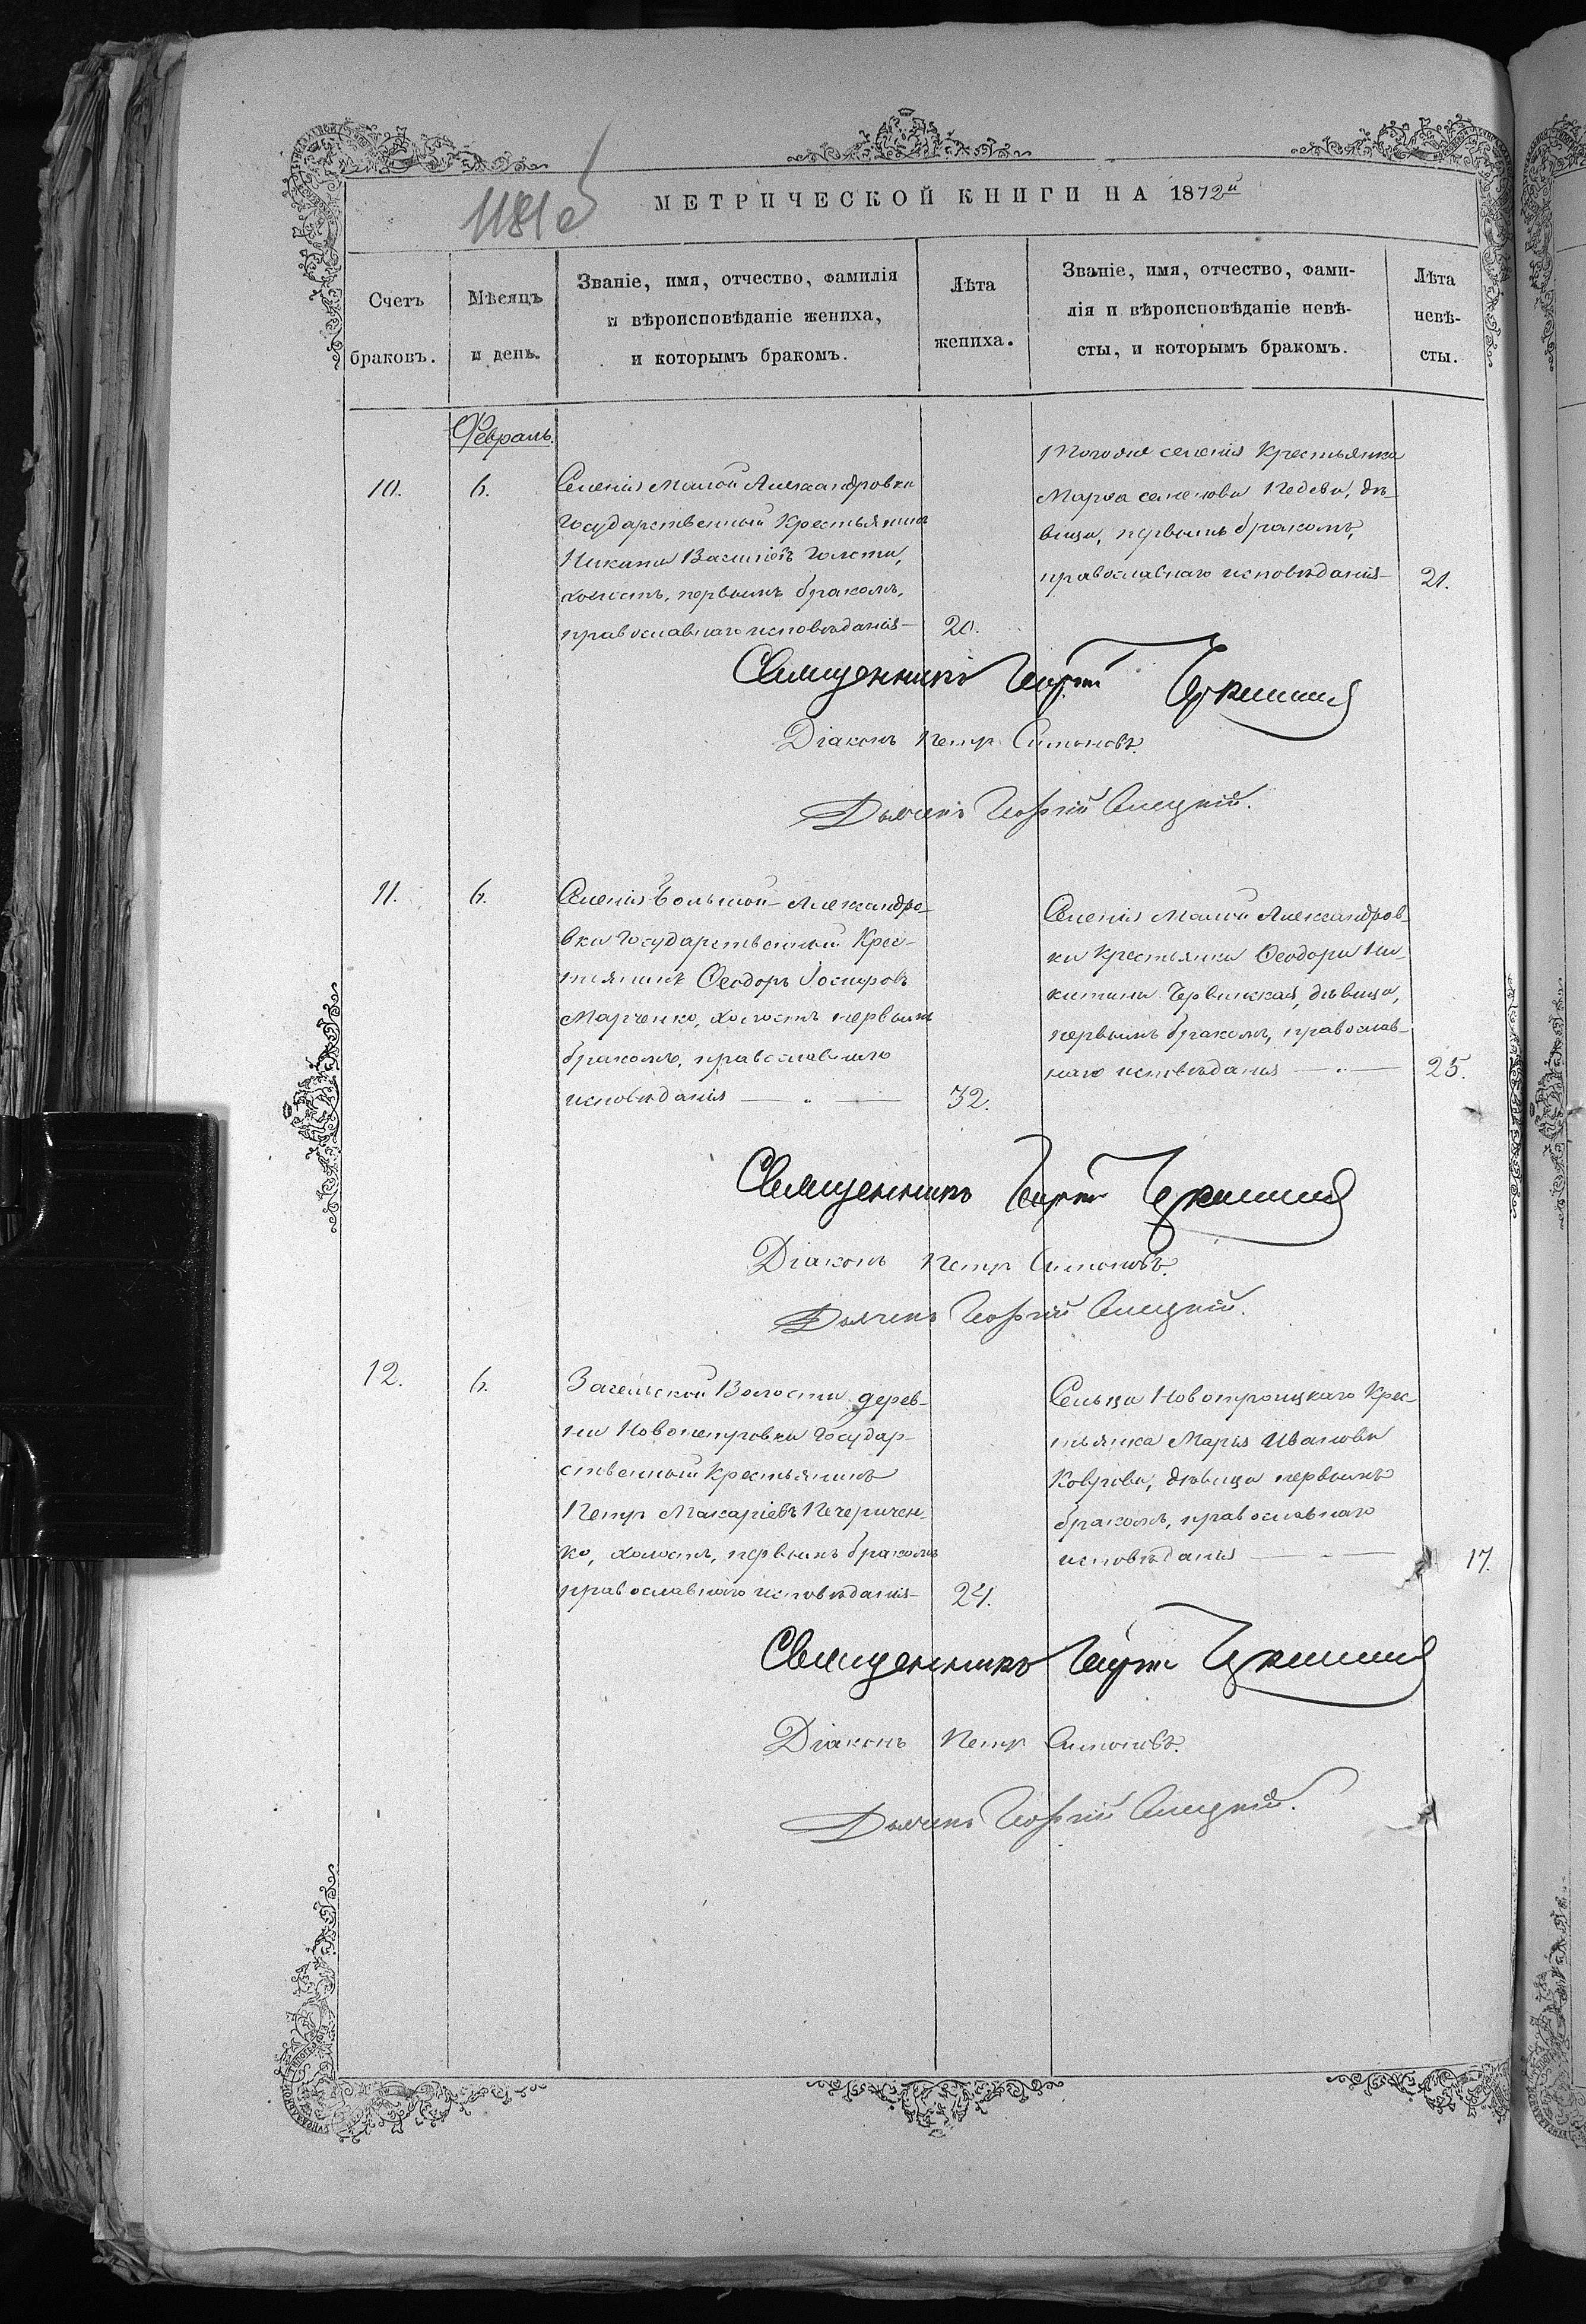 1181 об
МЕТРИЧЕСКОЙ КНИГИ НА 1872й
Счетъ браковъ.
Мѣсяцъ и день.
Званіе, имя, отчество, фамилія
и вѣроисповѣданіе жениха,
и которымъ бракомъ.
Лѣта жениха.
Званіе, имя, отчество, фами-
лія и вѣроисповѣданіе невѣ-
сты, и которымъ бракомъ.
Лѣта невѣ-
сты.
Февраль.
10.
6.
Селенія Малой Александровки
Государственный Крестьянинъ
Никита Василіевъ Толста,
холостъ, первымъ бракомъ,
православнаго исповѣданія —
20.
Тогоже селенія Крестьянка
Марѳа Семенова Педева, дѣ-
вица, первымъ бракомъ,
православнаго исповѣданія —
21.
Священникъ Георгій
Діаконъ Петръ Симоновъ.
Дьячекъ Георгій
11.
6.
Селенія Большой Александро-
вки Государственный Крес-
тьянинъ Ѳеодоръ Іосифовъ
Марченко, холостъ первымъ
бракомъ, православнаго
исповѣданія — „ —
32.
Селенія Малой Александров-
ки Крестьянка Ѳеодора Ни-
китина Червинская, дѣвица,
первымъ бракомъ, православ-
наго исповѣданія — „ —
25.
Священникъ Георгій
Діаконъ Петръ Симоновъ.
Дьячекъ Георгій
12.
6.
Волости дерев-
ни Новопетровки Государ-
ственный Крестьянинъ
Петръ Макаріевъ Печеричен-
ко, холостъ, первымъ бракомъ
православнаго исповѣданія —
24.
Сельца Новотроицкаго Крес-
тьянка Марія Иванова
Коврова, дѣвица первымъ
бракомъ, православнаго
исповѣданія — „ —
17.
Священникъ Георгій
Діаконъ Петръ Симоновъ.
Дьячекъ Георгій